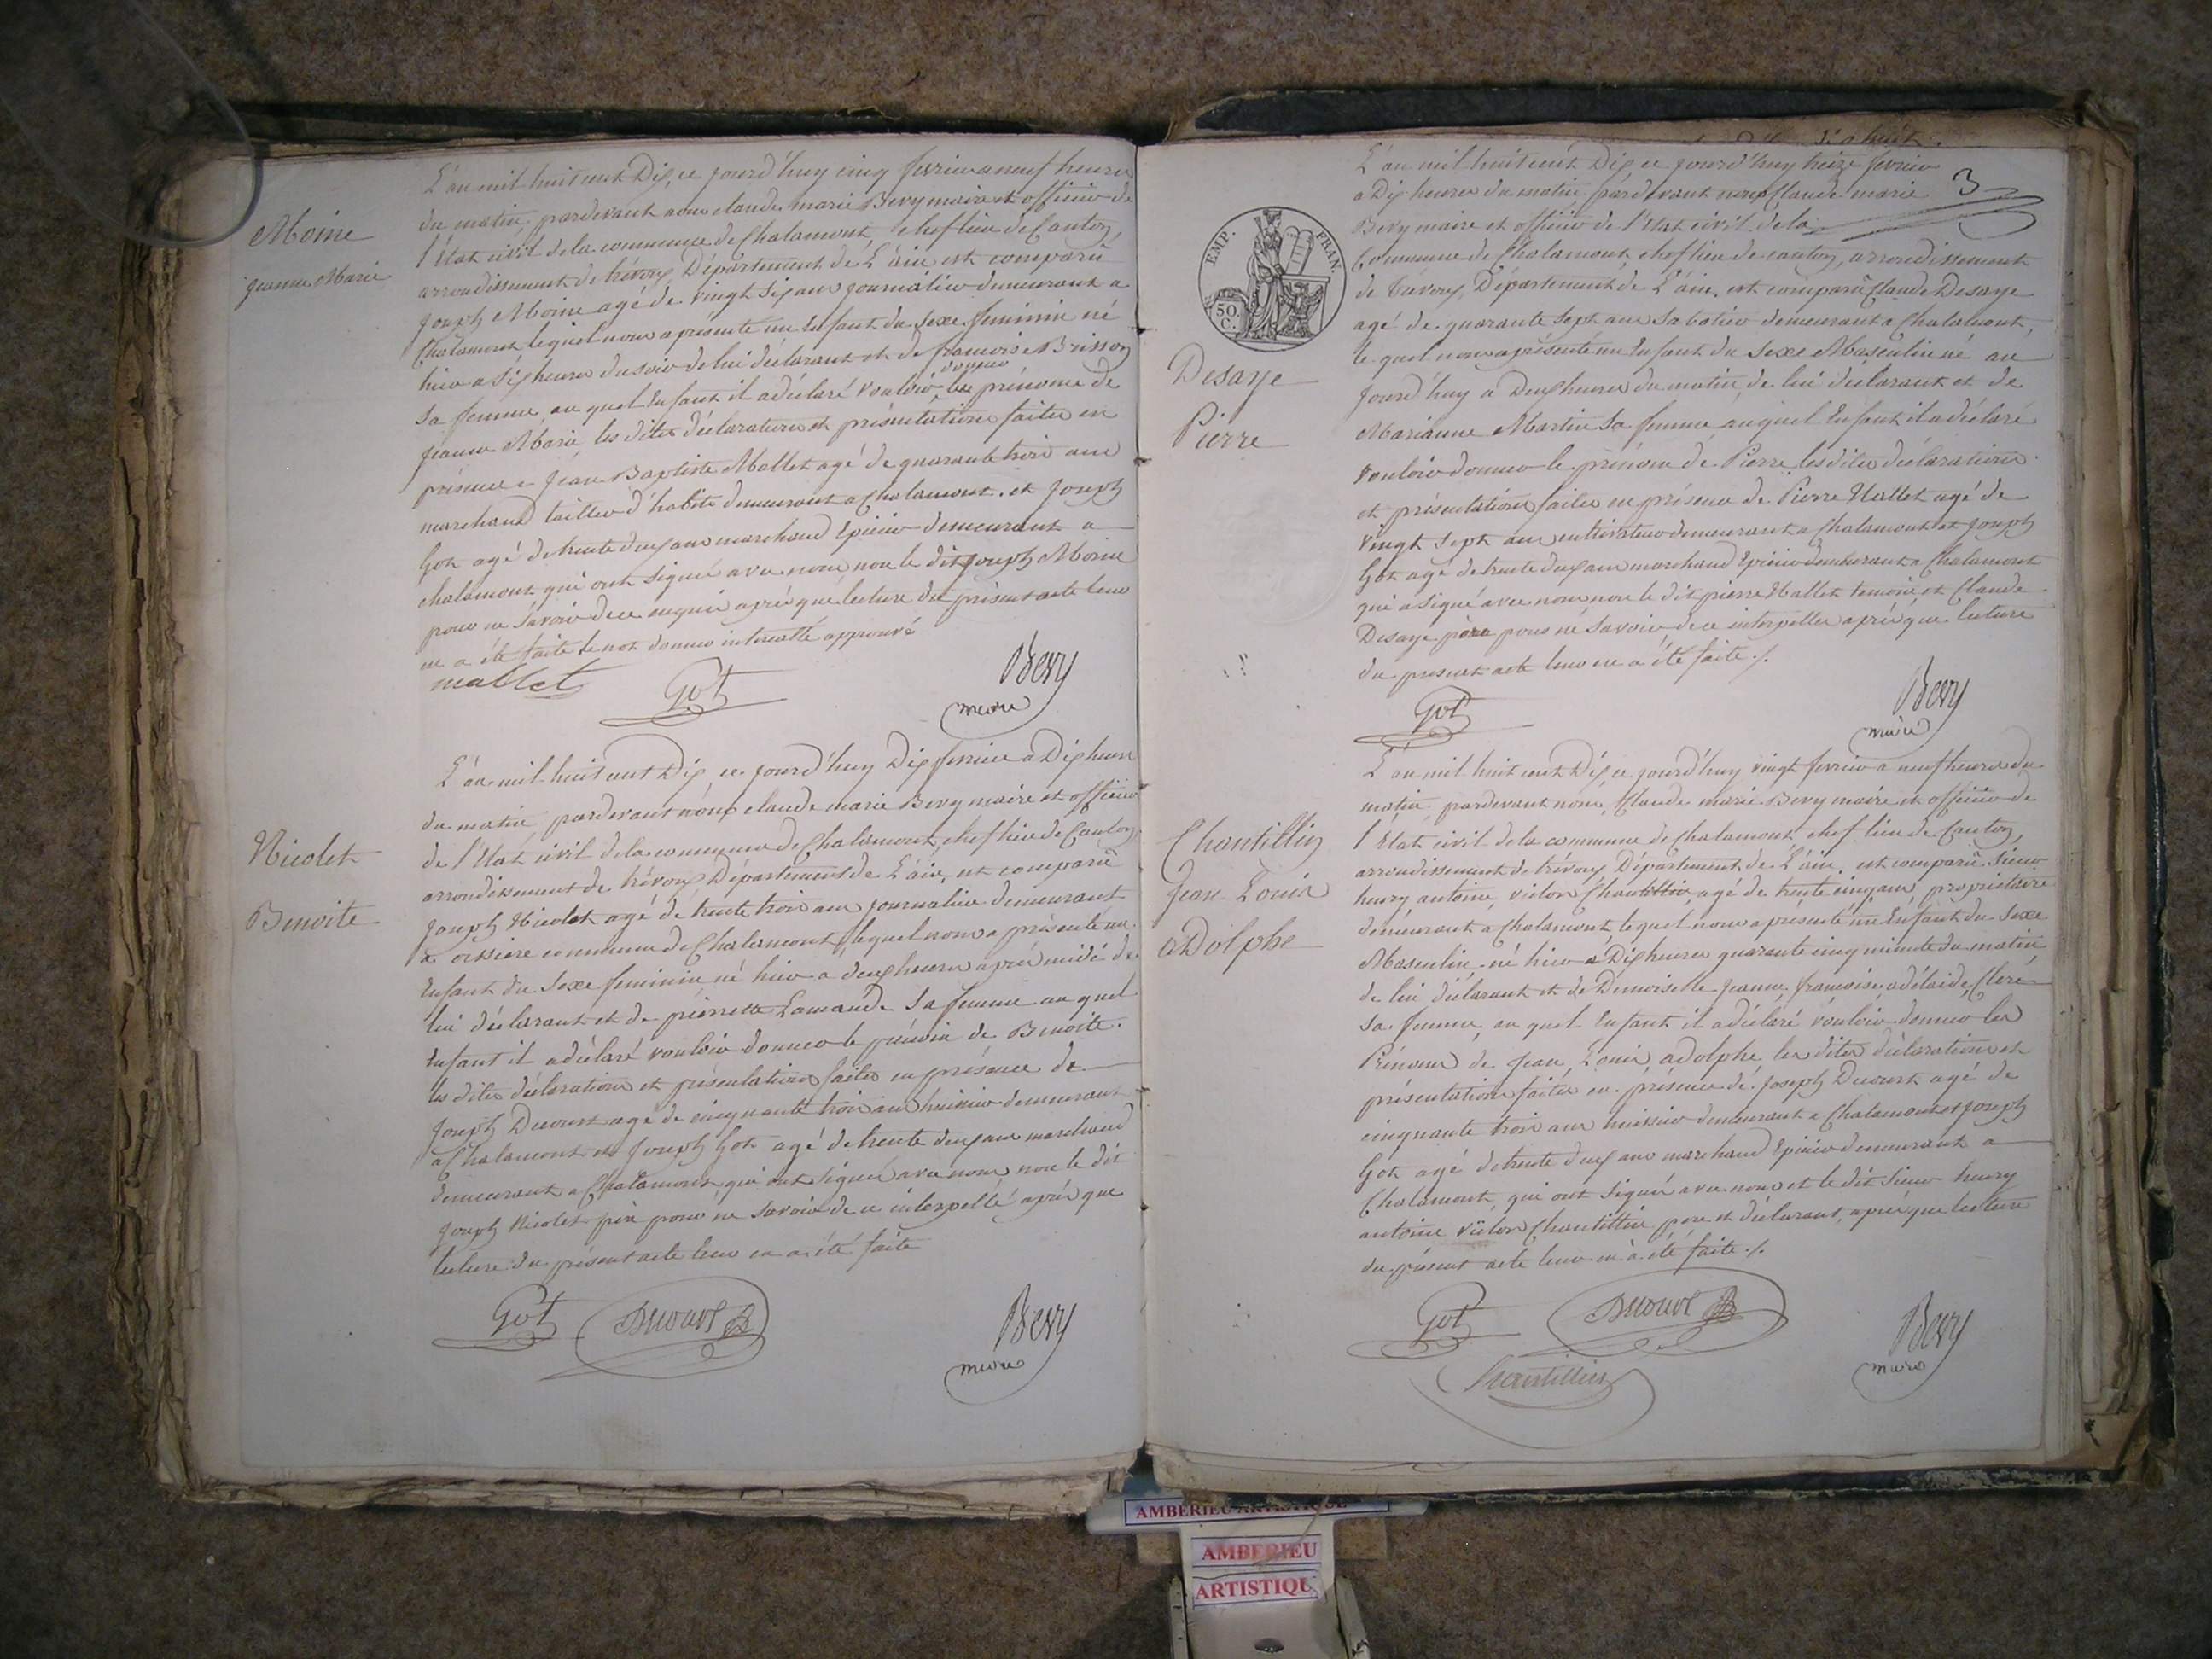 Moine
Jeanne Marie
L'an mil huit cent Dix, ce jourd'huy cinq fevrier a neuf heures
du matin, pardevant nous claude marie Bevy maire et officier de
l'État civil de la commune de Chalamont, chef lieu de Canton,
arrondissement de trévoux, Département de L'ain est comparû
Joseph Moine agé de vingt six ans journalier demeurant a
Chalamont lequel nous a présenté un Enfant du sexe feminin né
hier a six heures du soir de lui déclarant et de francoise Brisson
sa femme, au quel Enfant il a déclaré vouloir donner les prénoms de
Jeanne Marie les dites déclaration et présentation faites en
présence Jean Baptiste Mallet agé de quarante trois ans
marchand tailleur d'habits demeurant a Chalamont, et Joseph
Got agé de trente deux ans marchand Epicier demeurant a
chalamont qui ont signé avec nous, non le dit Joseph Moine
pour ne savoir de ce enquis après que lecture du présent acte leur
en a été faite le mot donner intercallé approuvé
mallet Got Bevy
maire
Nicolet
Benoite
L'an mil huit cent Dix ce jourd'huy Dix fevrier a Dix heures
du matin, pardevant nous claude marie Bevy maire et officier
de l'Etat civil de la commune de Chalamont, chef lieu de Canton,
arrondissement de trévoux Département de L'ain, est comparû
Joseph Nicolet agé de trente trois ans journalier demeurant
a oissiere commune de Chalamont, lequel nous a présenté un
Enfant du sexe feminin, né hier a deux heures après midi de
lui déclarant et de pierrette Lamande sa femme au quel
Enfant il a déclaré vouloir donner le prénom de Benoite.
les dites déclaration et présentation faites en présence de
Joseph Ducourt agé de cinquante trois ans huissier demeurant
a Chalamont et Joseph Got agé de trente deux ans marchand
demeurant a Chalamont qui ont signé avec nous, non le dit
Joseph Nicolet père pour ne savoir de ce interpellé après que
lecture du présent acte leur en a été faite
Got Ducourt Bevy
maire
3
EMP. FRAN.
50
C.
Desaye
Pierre
L'an mil huit cent Dix ce jourd'huy treize fevrier
a Dix heures du matin, pardevant nous Claude marie
Bevy maire et officier de l'Etat civil de la
Commune de Chalamont, chef lieu de canton, arrondissement
de Trévoux, Département de L'ain, est comparû Claude Desaye
agé de quarante sept ans sabotier demeurant a Chalamont,
le quel nous a présenté un Enfant du sexe Masculin né au
jourd'huy a Deux heures du matin, de lui déclarant et de
Marianne Martin sa femme auquel Enfant il a déclaré
vouloir donner le prénom de Pierre, les dites déclaration
et présentation faites en présence de Pierre Hallet agé de
vingt sept ans cultivateur demeurant a Chalamont et Joseph
Got agé de trente deux ans marchand Epicier demeurant a Chalamont
qui a signé avec nous, non le dit pierre Hallet temoin et Claude
Desaye père pour ne savoir de ce interpellés après que lecture
du present acte leur en a été faite ./.
Got Bevy
maire
Chantillin
Jean Louis
aDolphe
L'an mil huit cent Dix ce jourd'huy vingt fevrier a neuf heures du
matin, pardevant nous, Claude marie Bevy maire et officier de
l'Etat civil de la commune de Chalamont, chef lieu de Canton,
arrondissement de trévoux Département de L'ain, est comparû Sieur
henry antoine, victor Chantillin, agé de trente cinq ans, propriétaire
demeurant a Chalamont lequel nous a présenté un Enfant du sexe
Masculin, né hier a Dix heures quarante cinq minute du matin
de lui déclarant et de Demoiselle Jeanne, francoise, adélaïde, Cleré
sa femme, au quel Enfant il a déclaré vouloir donner les
Prénoms de Jean, Louis, adolphe, les dites déclaration et
présentation faites en présence de Joseph Ducourt agé de
cinquante trois ans huissier demeurant a Chalamont et Joseph
Got agé de trente deux ans marchand Epicier demeurant a
Chalamont, qui ont signé avec nous et le dit Sieur henry
antoine victor Chantillin père et déclarant, après que lecture
du présent acte leur en à été faite ./.
Got Ducourt Bevy
maire
Chantillin
AMBERIEU ARTISTIQUE
AMBERIEU
ARTISTIQU